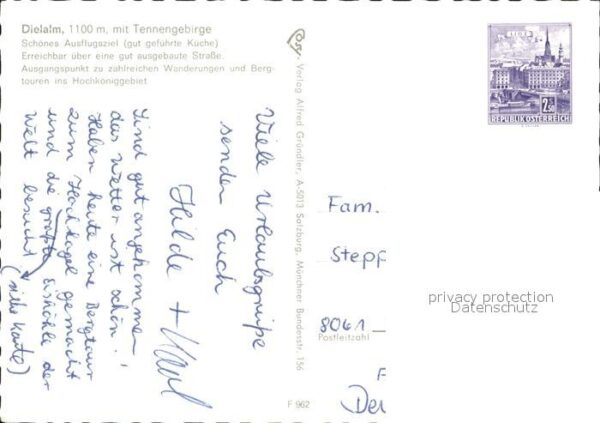 Dielalm, 1100 m, mit Tennengebirge
Schönes Ausflugsziel (gut geführte Küche)
Erreichbar über eine gut ausgebaute Straße
Ausgangspunkt zu zahlreichen Wanderungen und Berg-
touren ins Hochköniggebiet
Viele Urlaubsgrüße
senden Euch
Hilde + Karl
Sind gut angekommen
das Wetter ist schön!
Haben heute eine Bergtour
zum Hochkogel gemacht
und die größte Eishöhle der
Welt besucht (siehe Karte)
Verlag Alfred Gründler, A-5013 Salzburg, Münchner Bundesstr. 156
F 962
LINZ
2.-
REPUBLIK ÖSTERREICH
Fam.
Stepp
8061
Postleitzahl
F
Der
privacy protection
Datenschutz